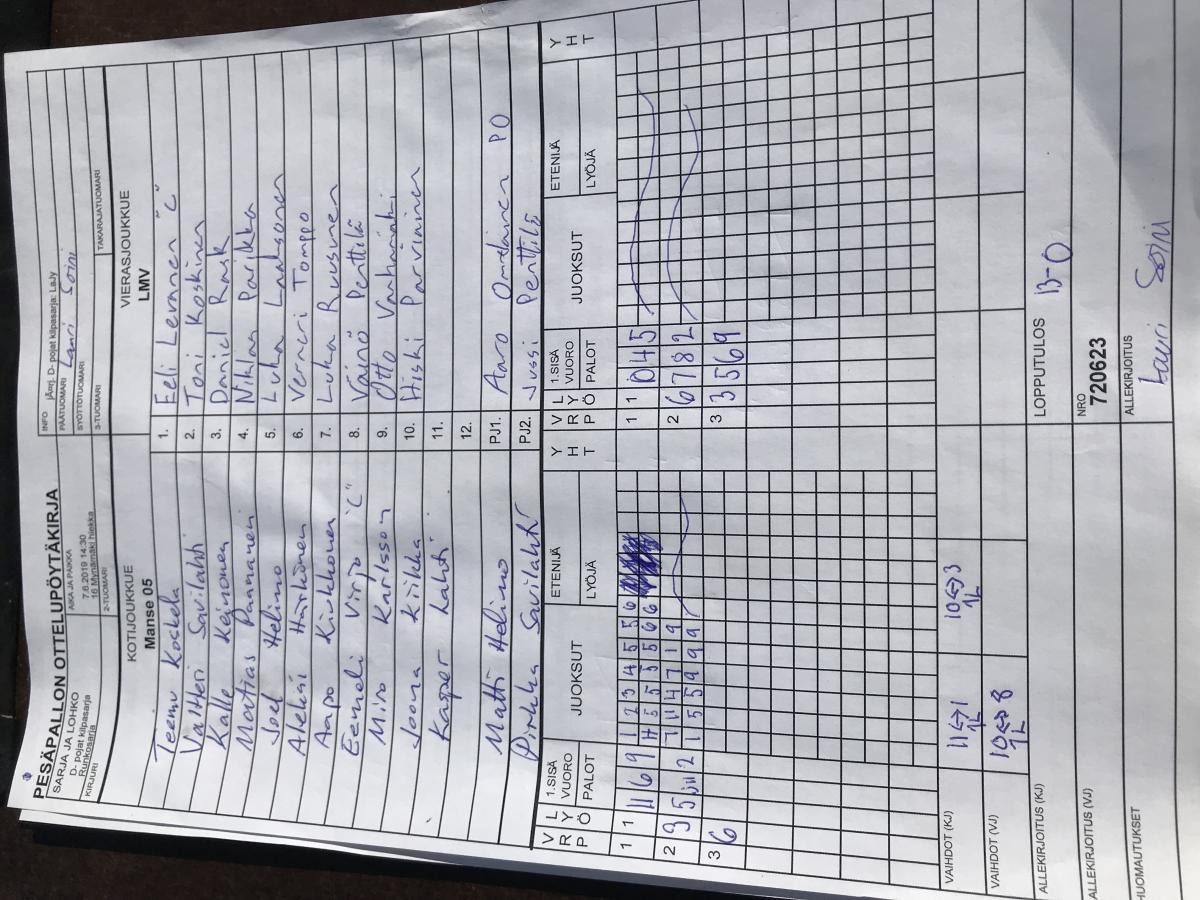 PESÄPALLON OTTELUPÖYTÄKIRJA
SARJA JA LOHKO
D- pojat kilpasarja
Runkosarja
KIRJURI
AIKA JA PAIKKA
7.6.2019 14:30
16 Mynämäki hiekka
2-TUOMARI
INFO JÄRJ. D- pojat kilpasarja: LaJy
PÄÄTUOMARI Lauri Soini
SYÖTTÖTUOMARI
3-TUOMARI
TAKARAJATUOMARI
KOTIJOUKKUE
Manse 05
VIERASJOUKKUE
LMV
Teemu Koskela 1. Eeli Levänen "C"
Valtteri Savilahti 2. Toni Koskinen
Kalle Keinonen 3. Daniel Rask
Mattias Paananen 4. Niklas Parikka
Joel Helimo 5. Luka Laaksonen
Aleksi Härkönen 6. Verneri Tomppo
Aapo Kirkkonen 7. Luka Ruusunen
Eemeli Virjo "C" 8. Väinö Penttilä
Miro Karlsson 9. Otto Vanhamäki
Joona Kiikka 10. Hiski Parviainen
Kasper Lahti 11.
12.
Matti Helimo PJ1. Aaro PO
Pirkka Savilahti PJ2. Jussi Penttilä
V R P L Y Ö 1.SISÄ VUORO PALOT JUOKSUT ETENIJÄ LYÖJÄ Y H T V R P L Y Ö 1.SISÄ VUORO PALOT JUOKSUT ETENIJÄ LYÖJÄ Y H T
1 1 11 6 9 1 2 3 4 5 5 6 1 1 10 4 5
4 5 5 5 5 6 6
2 9 5 2 7 11 4 7 1 9 2 6 7 8 2
1 5 5 9 9 9
3 6 3 3 5 6 9
VAIHDOT (KJ) 11<->1 1L 10<->3 1L
VAIHDOT (VJ) 10<->8 1L
ALLEKIRJOITUS (KJ)
LOPPUTULOS 13-0
ALLEKIRJOITUS (VJ)
NRO
720623
HUOMAUTUKSET
ALLEKIRJOITUS
Lauri Soini